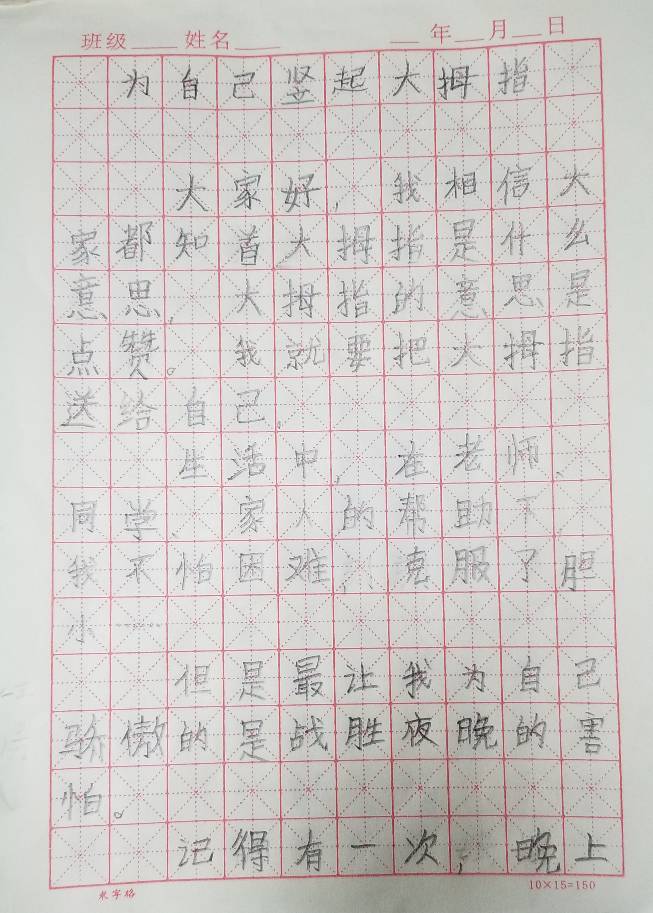 班级____ 姓名____ __年__月__日
为自己竖起大拇指
大家好,我相信大
家都知首大拇指是什么
意思,大拇指的意思是
点赞。我就要把大拇指
送给自己.
生活中,在老师、
同学、家人的帮助下,
我不怕困难,克服了胆
小……
但是最让我为自己
骄傲的是战胜夜晚的害
怕。
记得有一次,晚上
米字格 10×15=150